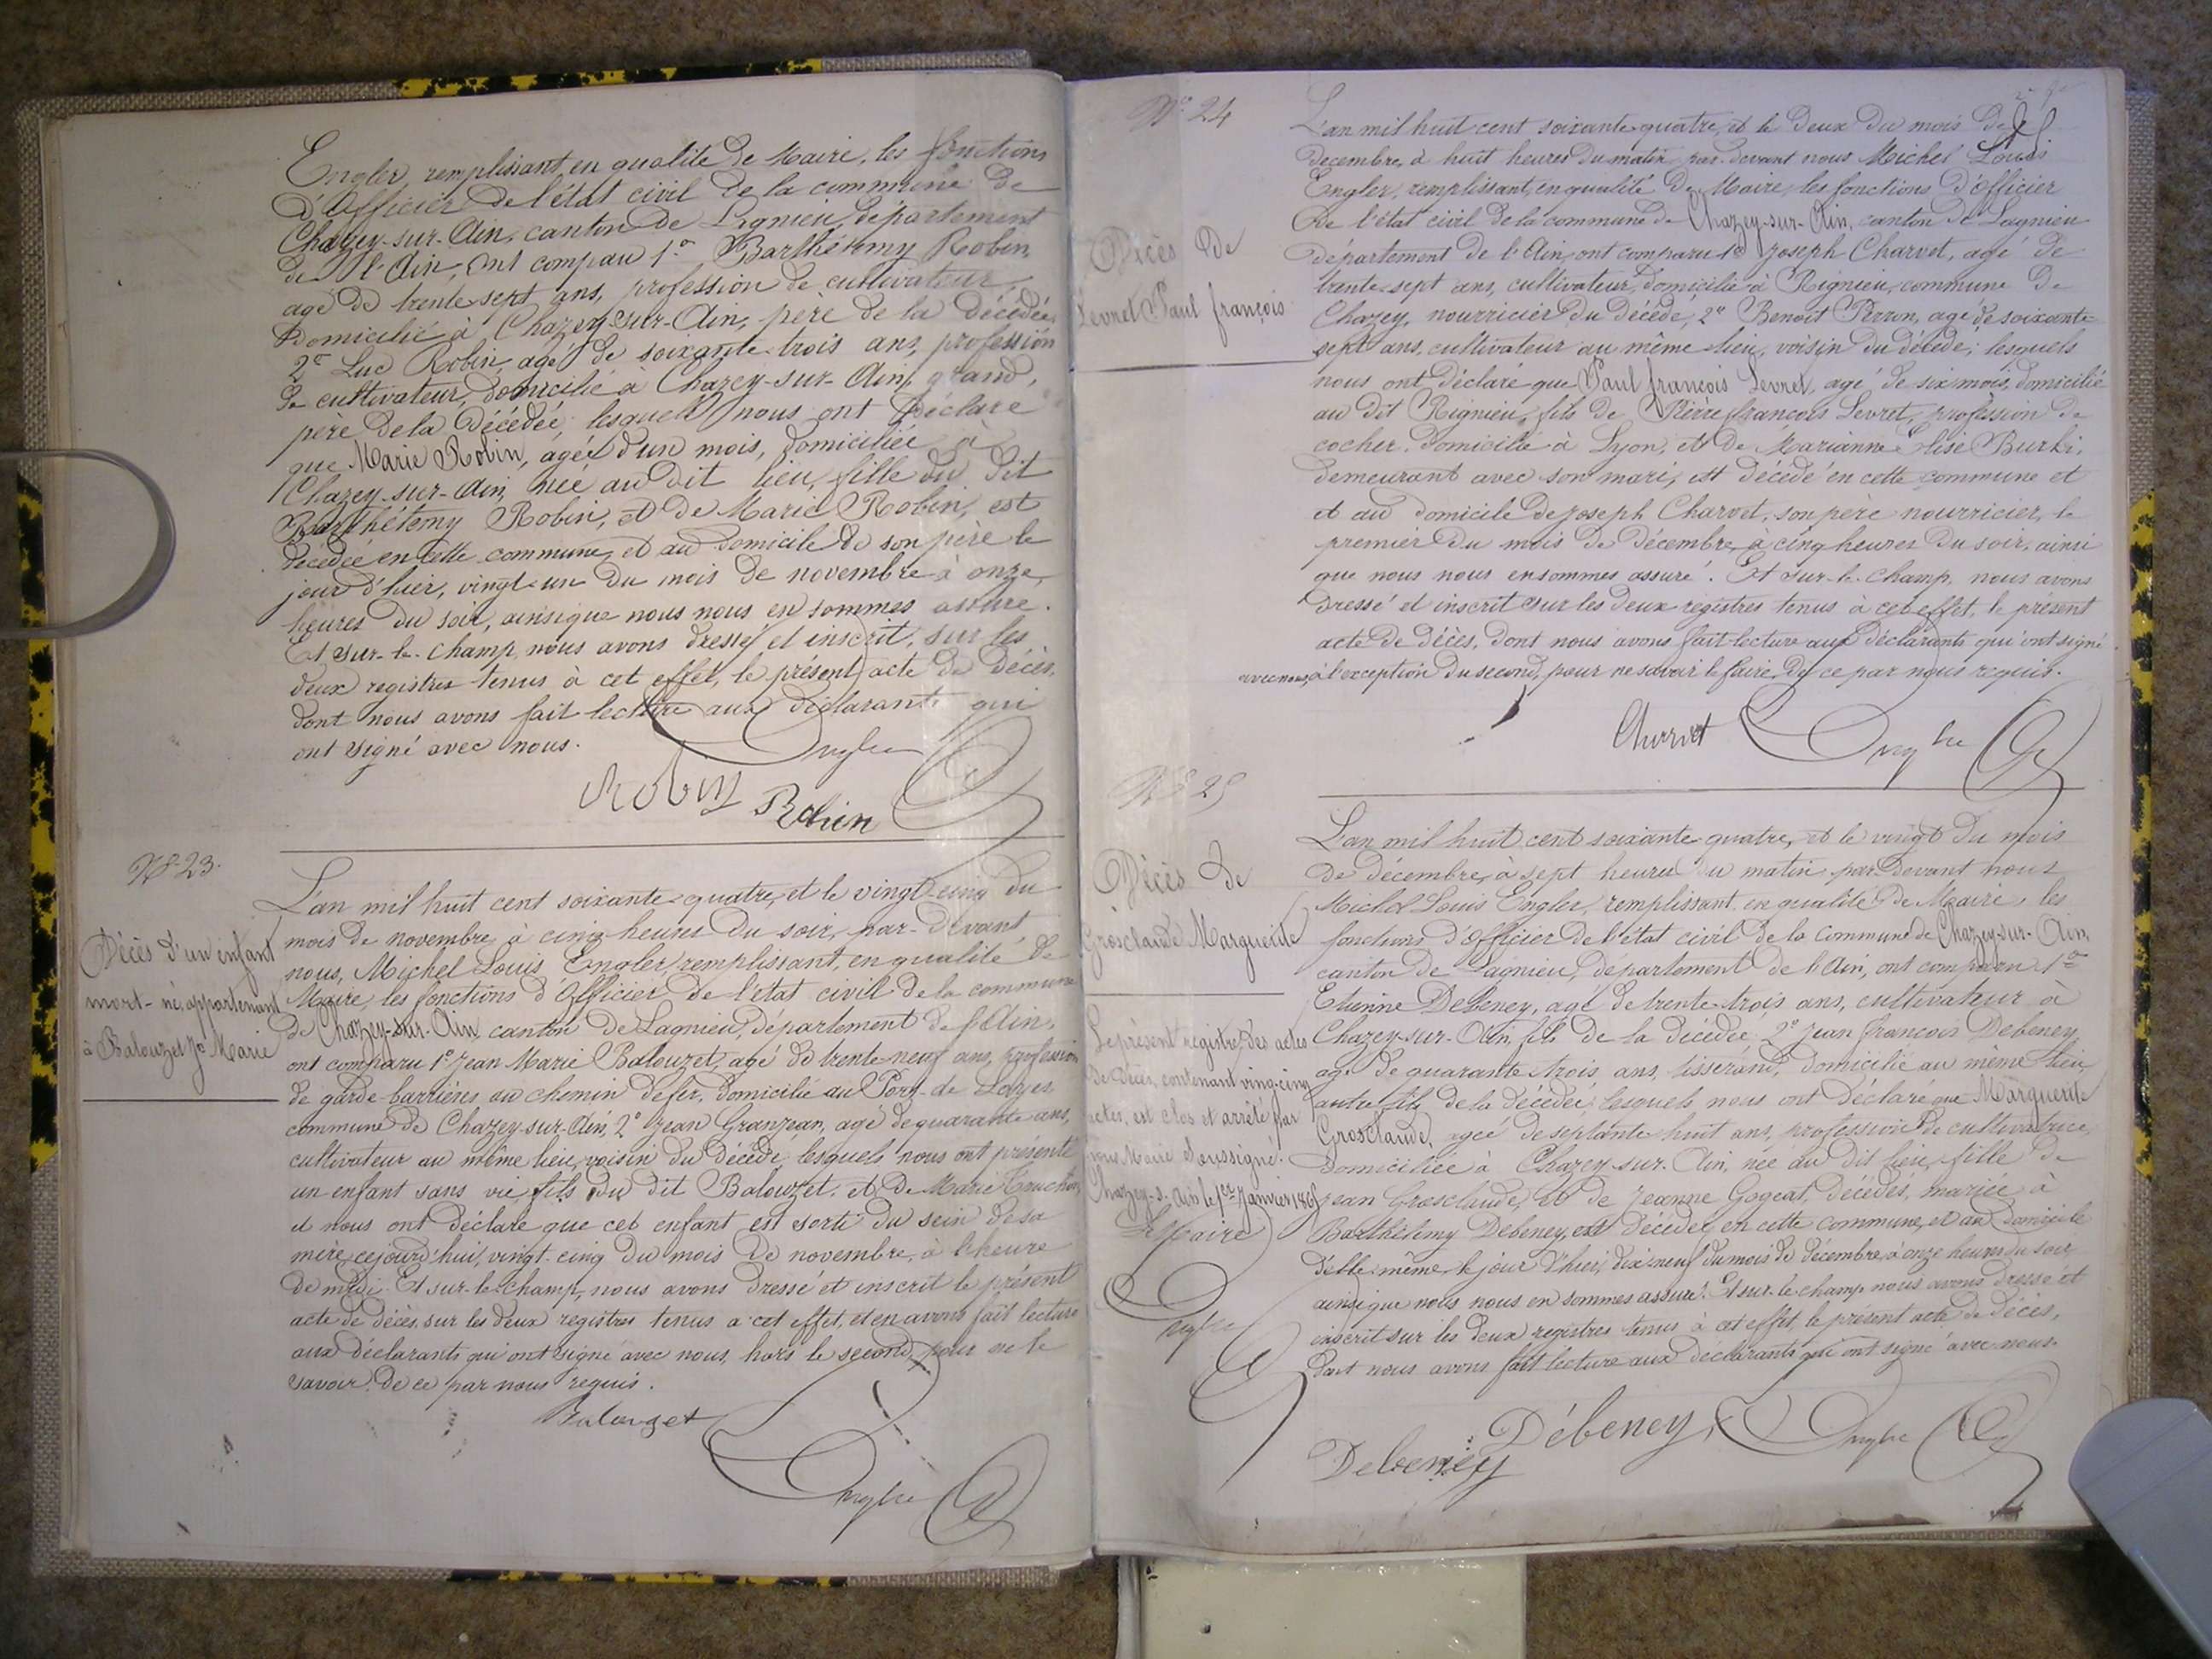 Engler, remplissant, en qualité de Maire, les fonctions
d'Officier de l'état civil de la commune de
Chazey-sur-Ain, canton de Lagnieu, département
de l'Ain, ont comparu 1° Barthélemy Robin,
agé de trente-sept ans, profession de cultivateur,
domicilié à Chazey-sur-Ain, père de la décédée,
2° Luc Robin, agé de soixante-trois ans, profession
de cultivateur, domicilié à Chazey-sur-Ain, grand,
père de la décédée, lesquels nous ont déclaré
que Marie Robin, agée d'un mois, domiciliée à
Chazey-sur-Ain, née au dit lieu, fille du dit
Barthélemy Robin, et de Marie Robin, est
décédée en cette commune, et au domicile de son père le
jour d'hier, vingt-un du mois de novembre à onze
heures du soir, ainsi que nous nous en sommes assuré.
Et sur-le-champ, nous avons dressé et inscrit, sur les
deux registres tenus à cet effet, le présent acte de décès,
dont nous avons fait lecture aux déclarants qui
ont signé avec nous.
Engler
Robin Robin
N° 23.
Décès d'un enfant
mort-né, appartenant
à Balouzet Jn Marie
L'an mil huit cent soixante-quatre, et le vingt-cinq du
mois de novembre à cinq heures du soir, par-devant
nous, Michel Louis Engler, remplissant, en qualité de
Maire, les fonctions d'Officier de l'état civil de la commune
de Chazey-sur-Ain, canton de Lagnieu, département de l'Ain,
ont comparu 1° Jean Marie Balouzet, agé de trente-neuf ans, profession
de garde-barrières au chemin de fer, domicilié au Port-de Loyes
commune de Chazey-sur-Ain, 2° Jean Granjean, agé de quarante ans,
cultivateur au même lieu, voisin du décédé, lesquels nous ont présenté
un enfant sans vie, fils du dit Balouzet, et de Marie
et nous ont déclaré que cet enfant est sorti du sein de sa
mère, cejourd'hui, vingt-cinq du mois de novembre, à l'heure
de midi. Et sur-le-champ, nous avons dressé et inscrit le présent
acte de décès, sur les deux registres tenus à cet effet, et en avons fait lecture
aux déclarants qui ont signé avec nous, hors le second, pour ne le
savoir, de ce par nous requis.
Balouzet
Engler
N° 24
Décès de
Levret Paul françois
L'an mil huit cent soixante-quatre, et le deux du mois de
décembre, à huit heures du matin par-devant nous Michel Louis
Engler, remplissant, en qualité de Maire, les fonctions d'Officier
de l'état civil de la commune de Chazey-sur-Ain, canton de Lagnieu
département de l'Ain, ont comparu 1° Joseph Charvet, agé de
trente-sept ans, cultivateur, domicilié à Rignieu, commune de
Chazey, nourricier du décédé, 2° Benoît Perron, agé de soixante-
sept ans, cultivateur au même lieu, voisin du décédé; lesquels
nous ont déclaré que Paul françois Levret, agé de six mois, domicilié
au dit Rignieu, fils de Pierre françois Levret, profession de
cocher, domicilié à Lyon, et de Marianne Elise Burki,
demeurant avec son mari, est décédé en cette commune et
et au domicile de Joseph Charvet, son père nourricier, le
premier du mois de décembre, à cinq heures du soir, ainsi
que nous nous en sommes assuré. Et sur-le-champ, nous avons
dressé et inscrit sur les deux registres tenus à cet effet, le présent
acte de décès, dont nous avons fait lecture aux déclarants qui ont signé
avec nous, à l'exception du second, pour ne savoir le faire, de ce par nous requis.
Charvet Engler
N° 25
Décès de
Grosclaude Marguerite
L'an mil huit cent soixante-quatre, et le vingt du mois
de décembre, à sept heures du matin par-devant nous
Michel Louis Engler, remplissant, en qualité de Maire, les
fonctions d'Officier de l'état civil de la commune de Chazey-sur-Ain,
canton de Lagnieu, département de l'Ain, ont comparu 1°
Etienne Debeney, agé de trente-trois ans, cultivateur à
Chazey-sur-Ain, fils de la décédée, 2° Jean françois Debeney
agé de quarante-trois ans, tisserand, domicilié au même lieu,
autre fils de la décédée, lesquels nous ont déclaré que Marguerite
Grosclaude, agée de septante huit ans, profession de cultivatrice,
domiciliée à Chazey-sur-Ain, née au dit lieu, fille de
Jean Grosclaude, et de Jeanne Gogeat, décédés, mariée à
Barthélemy Debeney, est décédée en cette commune, et au domicile
d'elle-même, le jour d'hier, dix-neuf du mois de décembre, à onze heures du soir,
ainsi que nous nous en sommes assuré. Et sur-le-champ nous avons dressé et
inscrit sur les deux registres tenus à cet effet, le présent acte de décès,
dont nous avons fait lecture aux déclarants qui ont signé avec nous.
Debeney Débeney Engler
Le présent registre des actes
de décès, contenant vingt-cinq
actes, est clos et arrêté par
nous Maire soussigné.
Chazey-s-Ain le 1er Janvier 1865
Le Maire
Engler